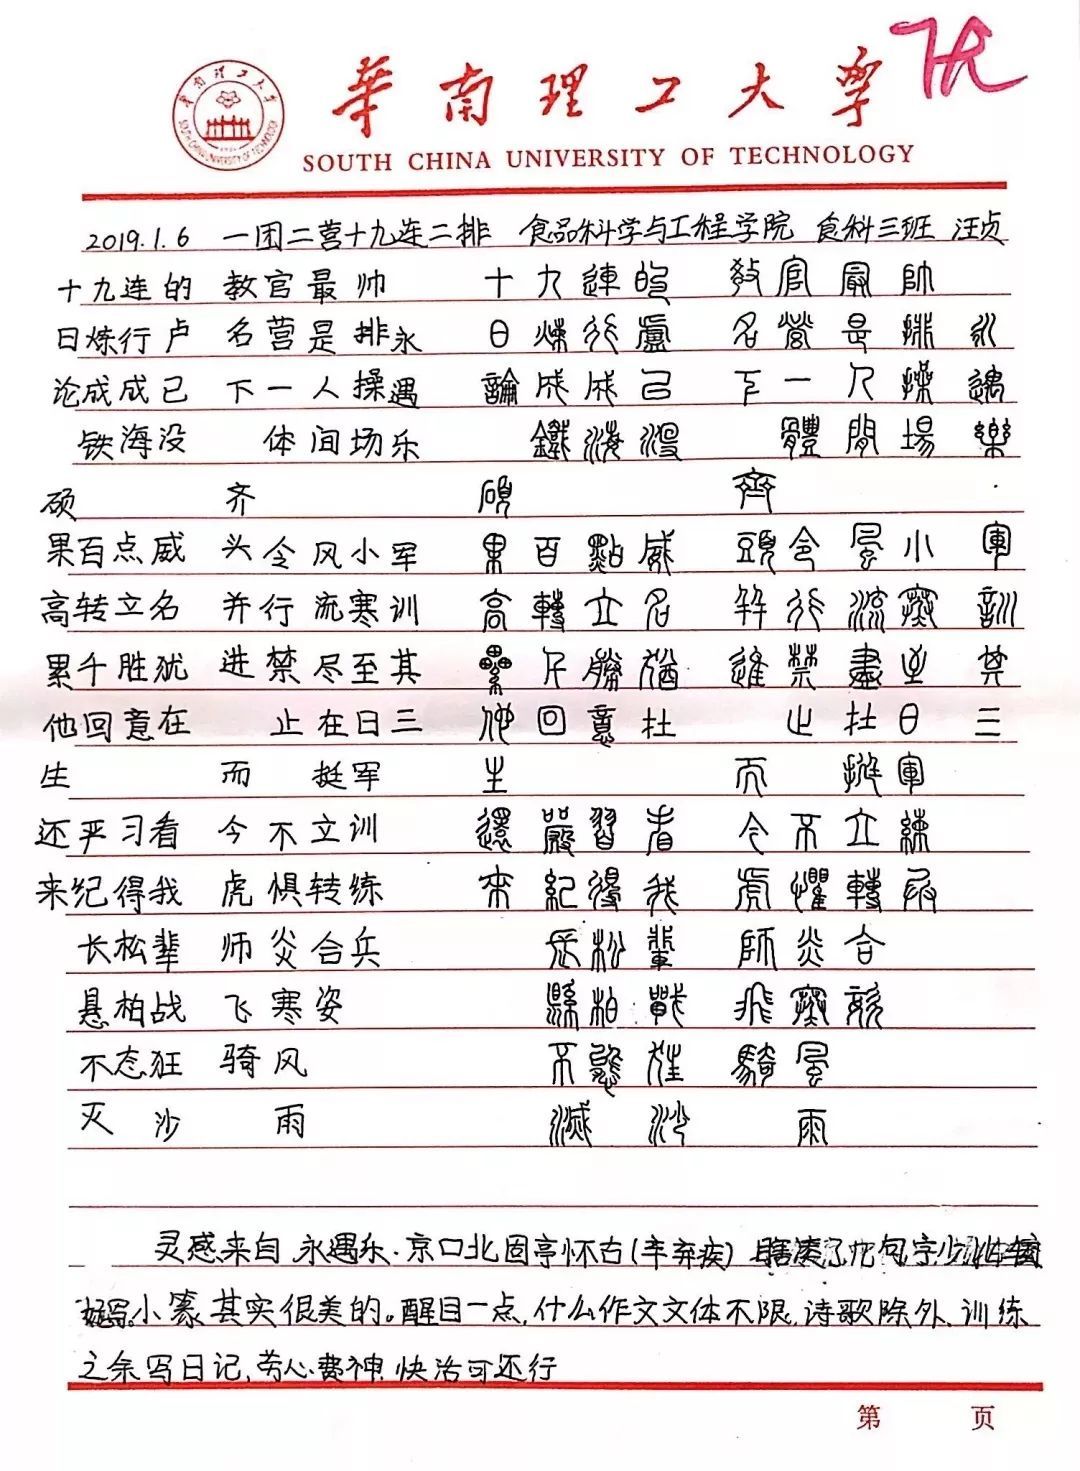 華南理工大學
SOUTH CHINA UNIVERSITY OF TECHNOLOGY
2019.1.6 一团二营十九连二排 食品科学与工程学院 食科三班 汪贞
永遇樂 軍訓其三
帥排操場 小寒至日 軍練兵
最是人間 風流盡在 挺立轉合姿
官營一體 令行禁止 不懼炎寒風雨
教名下齊 頭并進 而今虎師飛騎
的盧已沒 威名猶在 看我輩戰狂沙
連行成海 點立勝意 習得松柏態
九煉成鐵 百轉千回 嚴紀長懸不滅
十日論碩果高累他生還來
永遇乐 军训其三
帅排操场 小寒至日 军训练兵
最是人间 风流尽在 挺立转合姿
官营一体 令行禁止 不惧炎寒风雨
教名下齐 头并进 而今虎师飞骑
的卢已没 威名犹在 看我辈战狂沙
连行成海 点立胜意 习得松柏态
九炼成铁 百转千回 严纪长悬不灭
十日论硕果高累他生还来
灵感来自 永遇乐·京口北固亭怀古(辛弃疾) 瞎凑了几句,字少
小篆其实很美的。醒目一点,什么作文文体不限,诗歌除外,训练
之余写日记,劳心费神,快活可还行
第 页